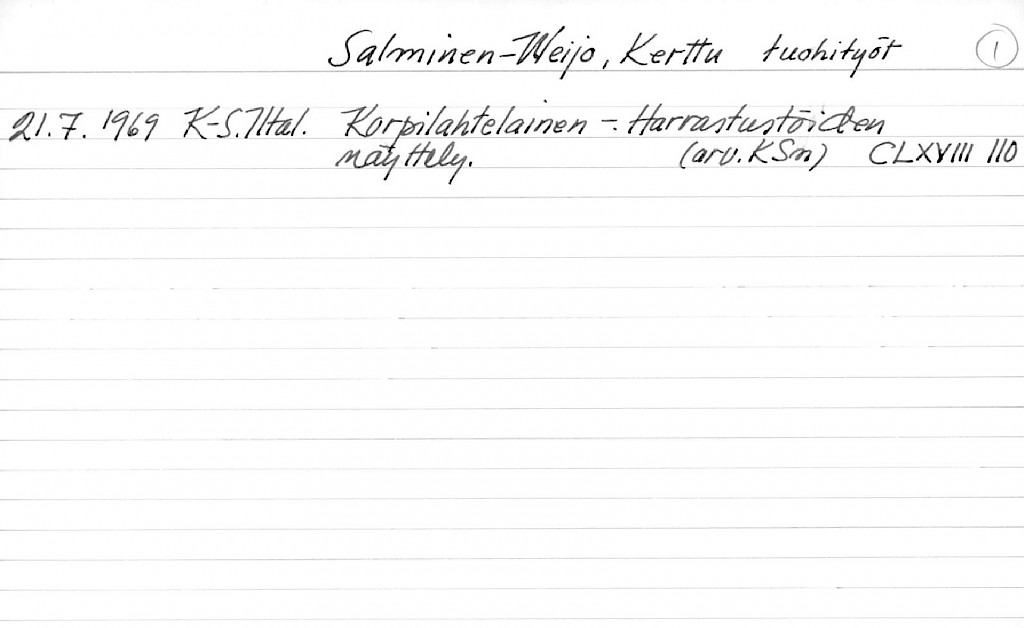 Salminen-Weijo, Kerttu tuohityöt 1
21.7. 1969 K-S.Iltal. Korpilahtelainen -. Harrastustöiden
näyttely. (arv. KSm) CLXVIII 110